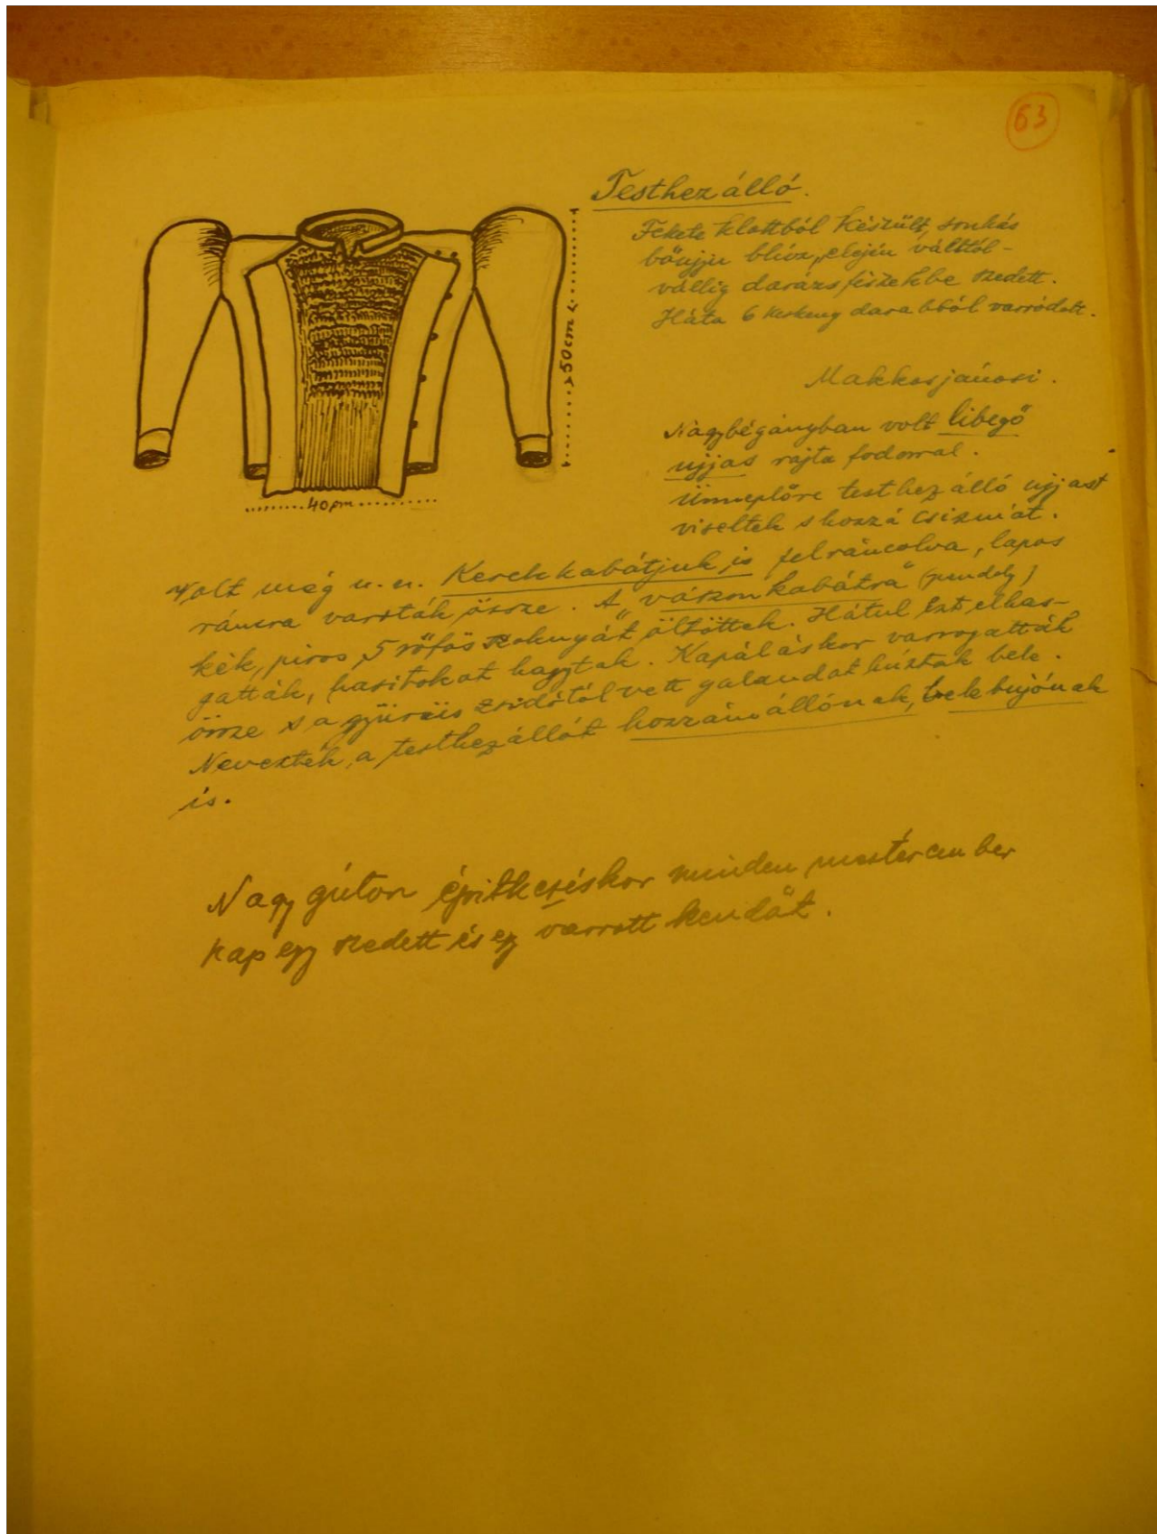 63
Testhezálló.
Fekete klottból készült, sonkás
bőujju blúz, elején válltól-
vállig darázsfészekbe szedett.
Háta 6 keskeny darabból varródott.
50 cm
40 cm
Makkosjánosi.
Nagybégányban volt libegő
ujjas rajta fodorral.
Ünneplőre testhez álló ujjast
viseltek s hozzá csizmát.
Volt még u.n. Kerek kabátjuk is felráncolva, lapos
ráncra varrták össze. A "vászonkabátra" (pendely)
kék, piros, 5 rőfös szoknyát öltöttek. Hátul ezt elhas-
gatták, hasitokat hagytak. Kapáláskor varrogatták
össze s a gyürüs zsidótól vett galandot húztak bele.
Nevezték a testhezállót hozzám állónak, belebujónak
is.
Nagy gúton épitkezéskor minden mesterember
kap egy szedett és egy varrott kendőt.